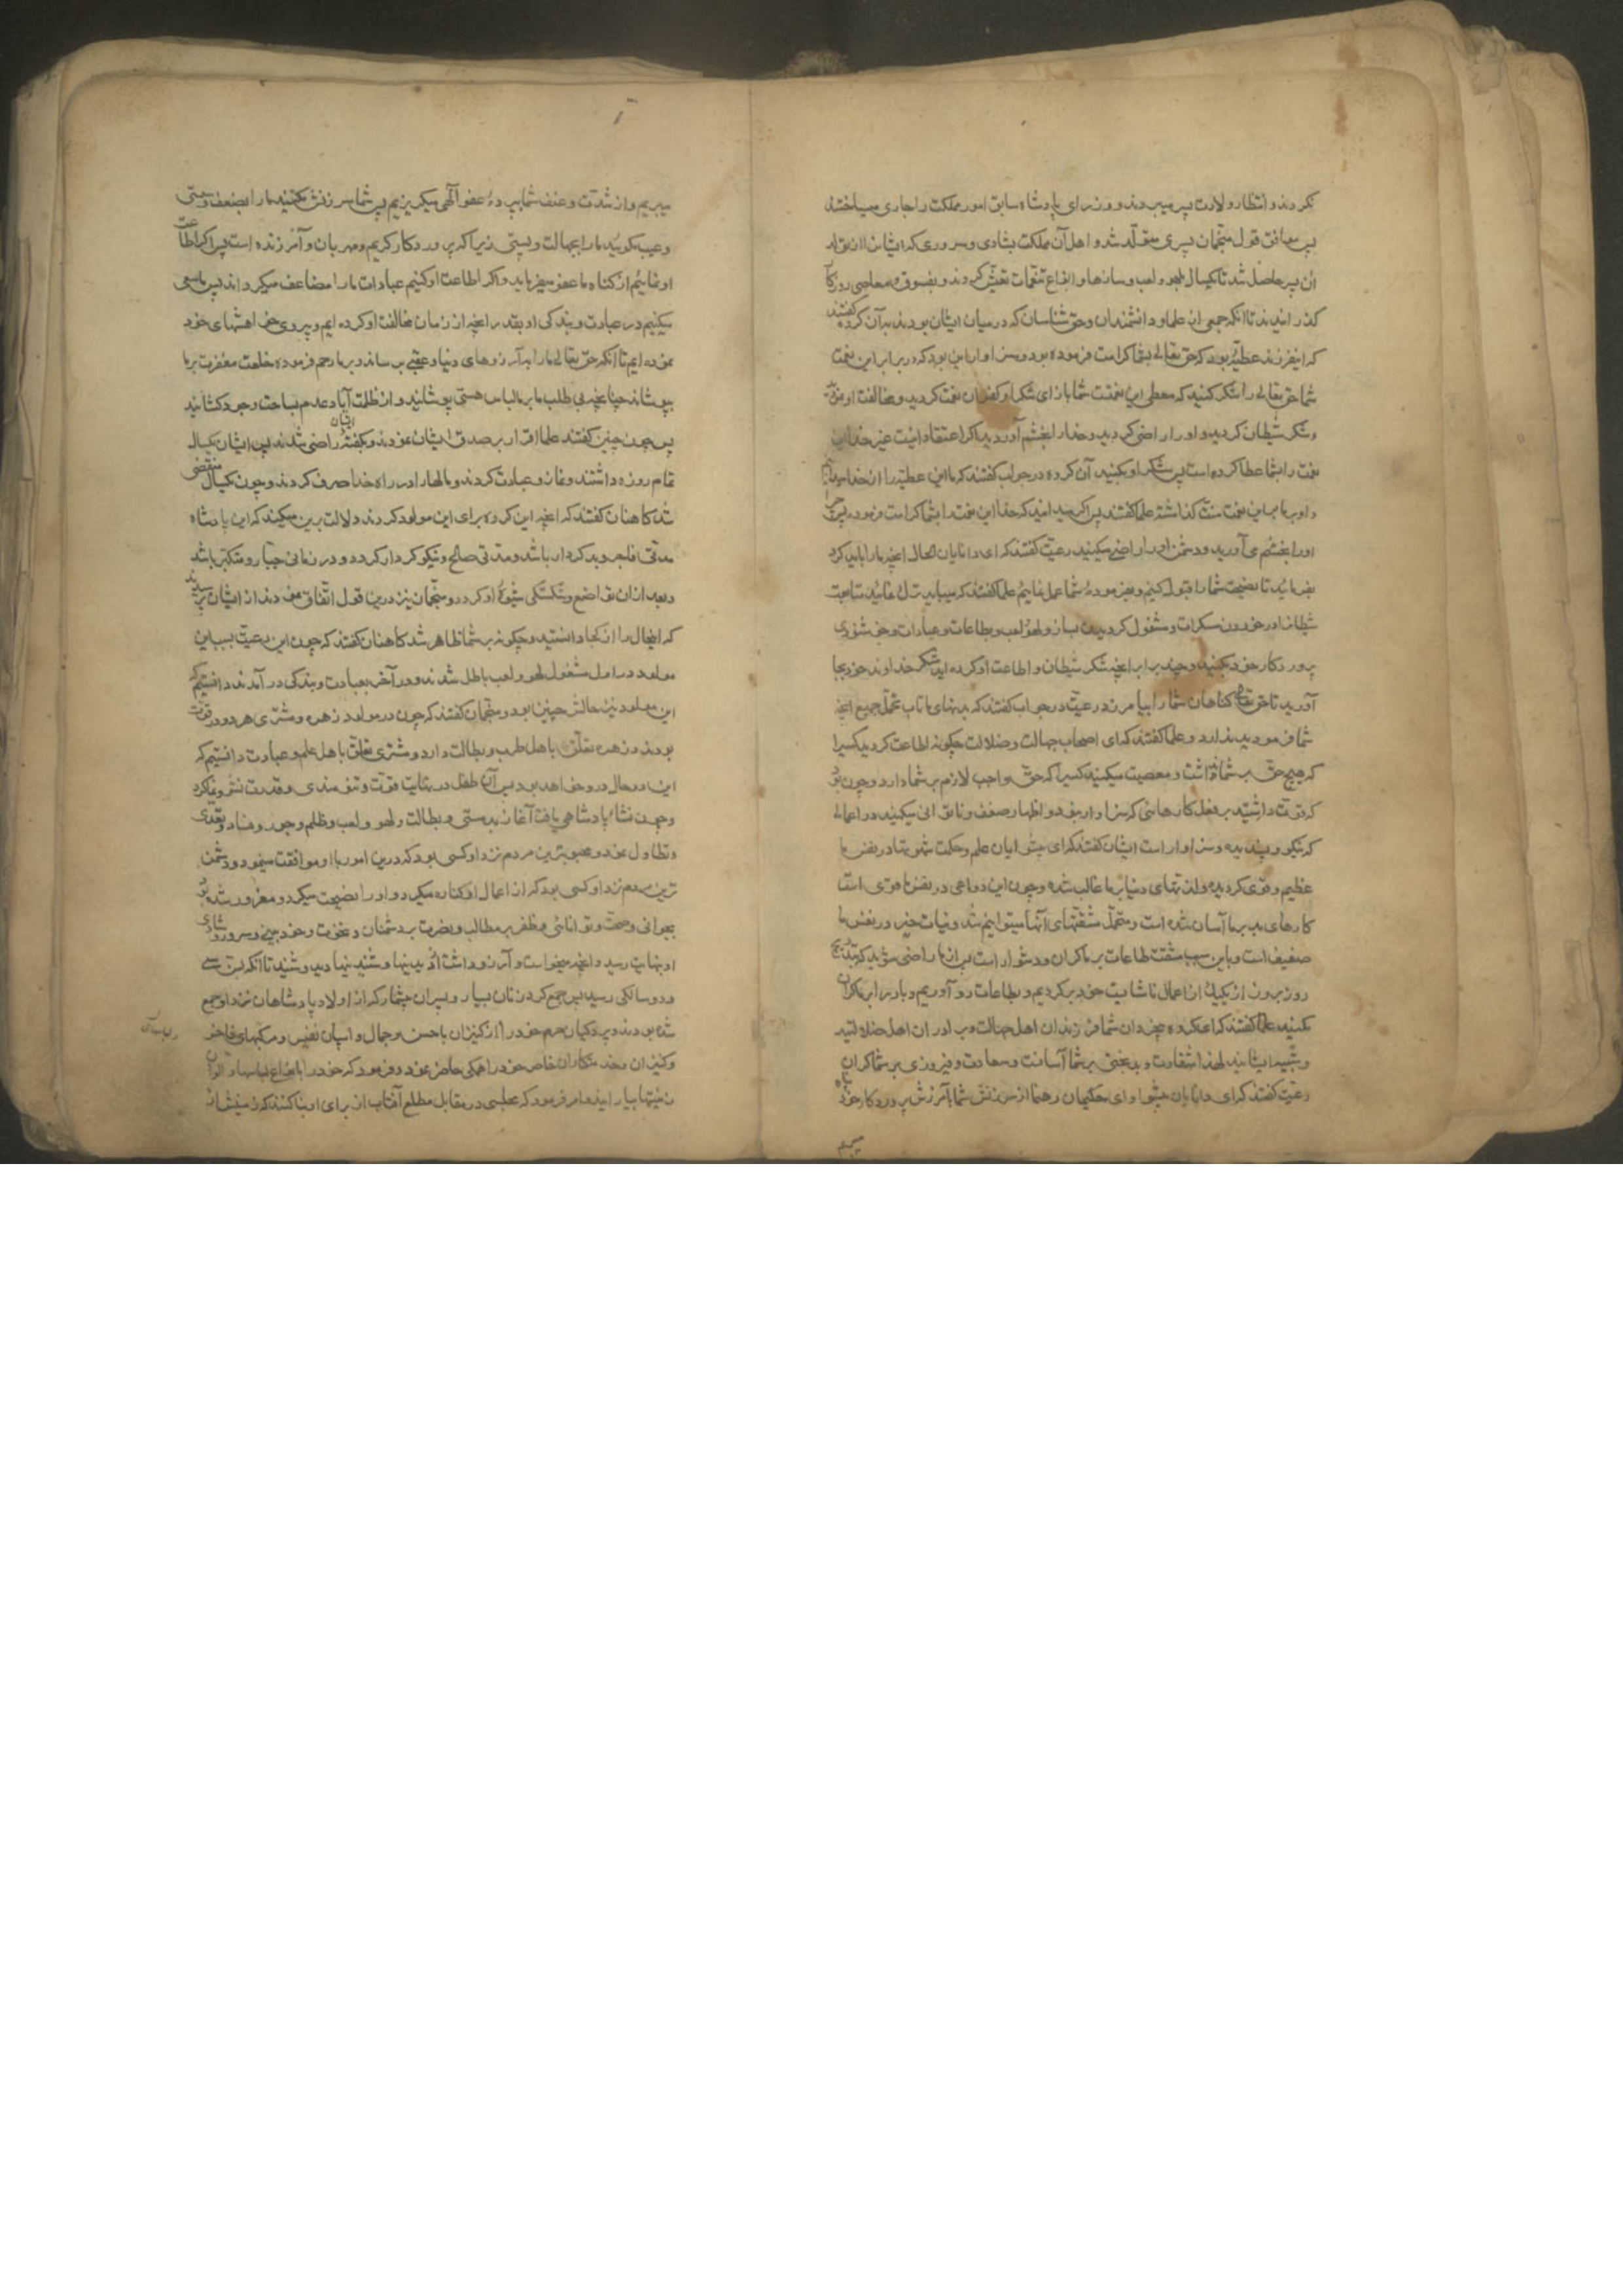 نکردند و انتظار ولادت پسر میبردند و وزرای پادشاه سابق امور مملکت را جاری میساختند
پس موافق قول منجمان پسری متولّد شد و اهل آن مملکت بشادی و سروری که ایشان را از تولد
آن پسر حاصل شد تا یکسال بلهو و لعب و سازها و انواع تنعّمات تعیّش کردند و بفسوق و معاصی روزکار
کذرانیدند تا آنکه جمعی از علما و دانشمندان و حق شناسان که در میان ایشان بودند بآن کروه کفتند
که اینفرزند عطیّۀ بود که حق تعالی بشما کرامت فرموده بود و سزاوار این بود که در برابر این نعمت
شما حق تعالی را شکر کنید که معطی این نعمتست شما بازای شکر او کفران نعمت کردید و مخالفت او نموده
و شکر شیطان کردید و او را راضی کردید و خدا را بخشم آوردید اکر اعتقاد دارید غیر خدا این
نعمت را بشما عطا کرده است پس شکر او بکنید آن کروه در جواب کفتند که ما این عطیّه را از خدا میدانیم
و او بر ما باین نعمت منت کذاشته علما کفتند پس اکر میدانید که خدا این نعمت را بشما کرامت فرموده چرا
او را بخشم می آورید و دشمن او را راضی میکنید رعیّت کفتند که ای دانایان الحال آنچه ما را باید کرد
بفرمائید تا نصیحت شما را قبول کنیم و بفرمودۀ شما عمل نمائیم علما کفتند که میباید ترک نمائید متابعت
شیطان را در خوردن مسکرات و مشغول کردیدن بساز و لهو و لعب و بطاعات و عبادات و خوشنودی
پروردکار خود بکنید و چند برابر آنچه شکر شیطان و اطاعت او کرده اید شکر خداوند خود بجا
آورید تا حق تعالی کناهان شما را بیامرزد رعیت در جواب کفتند که بدنهای ما تاب تحمّل جمیع آنچه
شما فرمودید ندارد و علما کفتند که ای اصحاب جهالت و ضلالت چکونه اطاعت کردید کسیرا
که هیچ حقّی بر شما نداشت و معصیت میکنید کسیرا که حقّ واجب لازم بر شما دارد و چون بود
که قوّت داشتید بر فعل کارهائی که سزاوار نبود و اظهار ضعف و ناتوانی میکنید در اعمالی
که نیکو و پسندیده و سزاوار است ایشان کفتند که ای پیشوایان علم و حکمت شهوتها در نفس ما
عظیم و قوی کردیده و لذتهای دنیا بر ما غالب شده و چون این دواعی در نفس ما قوی است
کارهای بد بر ما آسان شده است و متحمّل مشقّتهای آنها میتوانیم شد و نیات خیر در نفس ما
ضعیف است و باین سبب مشقت طاعات بر ما کران و دشوار است پس از ما راضی شوید که بتدریج
روز بروز از یکیک از اعمال ناشایست خود برکردیم و بطاعات رو آوریم و بار را بر ما کران
مکنید علما کفتند که ای کروه بیخردان شما فرزندان اهل جهالت و برادران اهل ضلالتید
و شبیه ایشانید لهذا شقاوت و بدبختی بر شما آسانست و سعادت و فیروزی بر شما کران
رعیت کفتند که ای دانایان پیشوا و ای حکیمان رهنما از سرزنش شما بآمرزش پروردکار خود پناه
میبریم
میبریم و از شدّت و عنف شما بپردۀ عفو الهی میکریزیم پس شما سرزنش مکنید ما را بضعف و سستی
و عیب مکوئید ما را بجهالت و پستی زیرا که پروردکار کریم و مهربان و آمرزنده است پس اکر اطاعت
او نمائیم از کناه ما عفو میفرماید و اکر اطاعت او کنیم عبادات ما را مضاعف میکرداند پس ما سعی
میکنیم در عبادت و بندکی او بقدر آنچه از زمان مخالفت او کرده ایم و پیروی خواهشهای خود
نموده ایم تا آنکه حق تعالی ما را بآرزوهای دنیا و عقبی برساند و بر ما رحم فرموده خلعت مغفرت بر ما
بپوشاند چنانچه بی طلب ما بر ما لباس هستی پوشانید و از ظلمت آباد عدم بساحت وجود کشانید
پس چون چنین کفتند علما اقرار بصدق ایشان نمودند و بکفتۀ ایشان راضی شدند پس ایشان یکسال
تمام روزه داشتند و نماز و عبادت کردند و مالها را در راه خدا صرف کردند و چون یکسال منقضی
شد کاهنان کفتند که آنچه این کروه برای این مولود کردند دلالت برین میکند که این پادشاه
مدتی فاجر و بدکردار باشد و مدتی صالح و نیکو کردار کردد و در زمانی جبّار و متکبّر باشد
و بعد از آن تواضع و شکستکی شیوۀ او کردد و منجّمان نیز درین قول اتّفاق نمودند از ایشان پرسیدند
که اینحال را از کجا دانستید و چکونه بر شما ظاهر شد کاهنان کفتند که چون این رعیّت بسبب این
مولود در اول مشغول لهو و لعب باطل شدند و در آخر بعبادت و بندکی در آمدند دانستیم که
این مولود نیز حالش چنین بود و منجّمان کفتند که چون در مولود زهره و مشتری هر دو در قوّت
بودند و زهره تعلّق باهل طرب و بطالت دارد و مشتری تعلّق باهل علم و عبادت دانستیم که
این دو حال درو خواهد بود پس آن طفل در نهایت قوّت و تنومندی و قدرت نشو و نما کرد
و چون نشاء پادشاهی یافت آغاز بدمستی و بطالت و لهو و لعب و ظلم و جور و فساد و تعدّی
و تطاول نمود و محبوبترین مردم نزد او کسی بود که درین امور با او موافقت مینمود و دشمن
ترین مردم نزد او کسی بود که از اعمال او کناره میکرد و او را نصیحت میکرد و مغرور شده بود
بجوانی و صحّت و توانائی و ظفر بر مطالب و نصرت بر دشمنان و نخوت و خودبینی و سرور و شادی
او بنهایت رسید و آنچه میخواست و آرزو داشت از دیدنیها و شنیدنیها دید و شنید تا آنکه بسن سی
و دو سالکی رسید پس جمع کرد زنان بسیار و پسران بیشمار که از اولاد پادشاهان نزد او جمع
شده بودند و پردکیان حرم خود را از کنیزان باحسن و جمال و اسپان نفیس و مرکبهای فاخر
و کنیزان و خدمتکاران خاص خود را همکی حاضر نمود و فرمود که خود را بانواع لباسها و الوان
زینتها بیارایند و امر فرمود که مجلسی در مقابل مطلع آفتاب از برای او بنا کنند که زمینش از